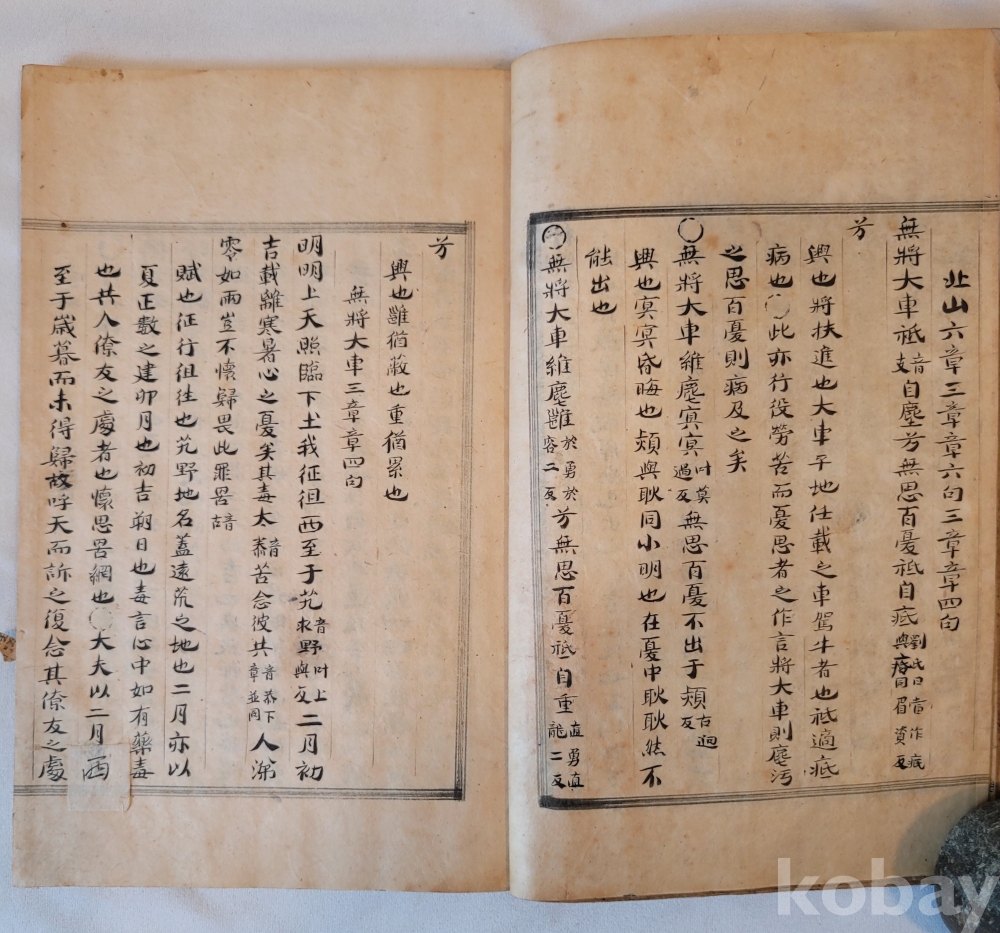 北山六章三章章六句三章章四句
無將大車祗音支自塵兮無思百憂祗自疧劉氏曰當作痻與瘽同眉貧反
兮
興也將扶進也大車平地任載之車駕牛者也祗適疧
病也○此亦行役勞苦而憂思者之作言將大車則塵汚
之思百憂則病及之矣
○無將大車維塵冥冥叶莫逈反無思百憂不出于熲古逈反
興也冥冥昏晦也熲與耿同小明也在憂中耿耿然不
能出也
○無將大車維塵雝於勇於容二反兮無思百憂祗自重直勇直龍二反
兮
興也雝猶蔽也重猶累也
無將大車三章章四句
明明上天照臨下土我征徂西至于艽音求野叶上與反二月初
吉載離寒暑心之憂矣其毒太音泰苦念彼共音恭下章並同人涕
零如雨豈不懷歸畏此罪罟音古
賦也征行徂往也艽野地名蓋遠荒之地也二月亦以
夏正數之建卯月也初吉朔日也毒言心中如有藥毒
也共人僚友之處者也懷思罟網也○大夫以二月西
至于歲暮而未得歸故呼天而訴之復念其僚友之處
kobay